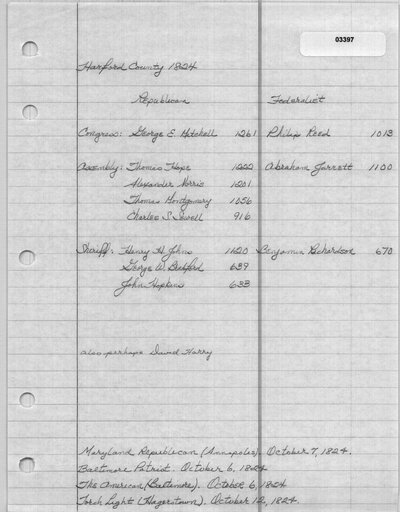 03397
Harford County 1824
Republican Federalist
Congress: George E. Mitchell 1261 Philip Reed 1013
Assembly: Thomas Hope 1222 Abraham Jarrett 1100
Alexander Norris 1201
Thomas Montgomery 1056
Charles S. Sewell 916
Sheriff: Henry H. Johns 1120 Benjamin Richardson 670
George W. Bradford 639
John Hopkins 633
also perhaps David Harry
Maryland Republican (Annapolis). October 7, 1824.
Baltimore Patriot. October 6, 1824
The American (Baltimore). October 6, 1824
Torch Light (Hagerstown). October 12, 1824.